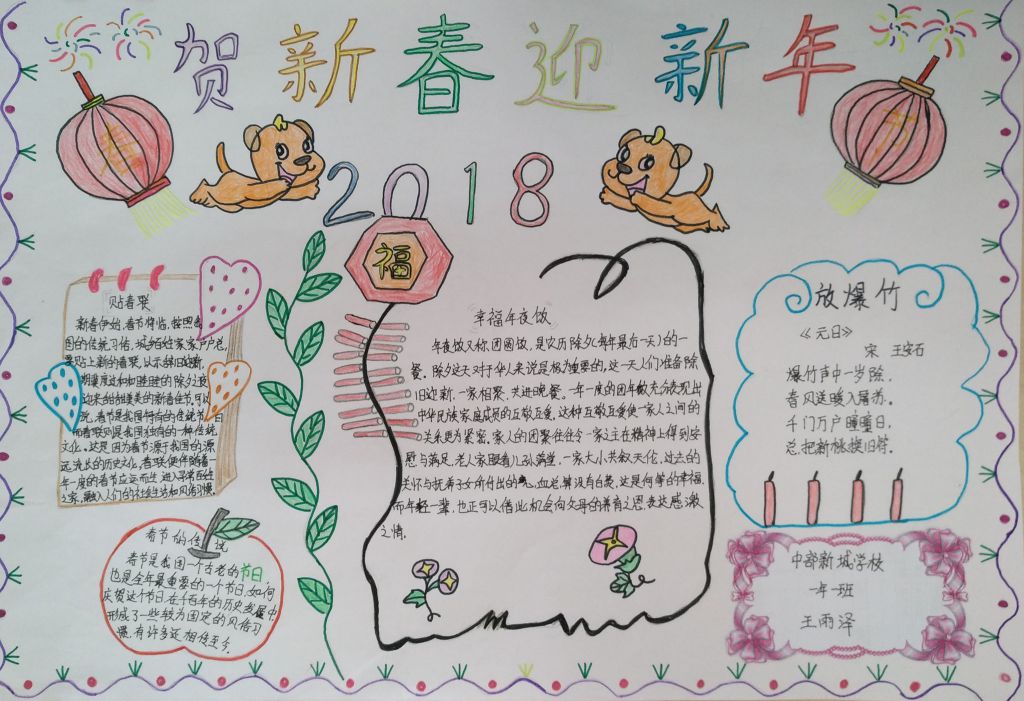 贺新春迎新年
2018
福
贴春联
新春伊始,春节将临,按照
国的传统习俗,城乡百姓家家户户总
要贴上新的春联,以示辞旧迎新,
一年度的春节应运而生
之家,融入人们的社会生活和风俗习惯。
文化。这是因为春节源于我国的源
远流长的历史文化,春联便伴随着
春节的传说
春节是我国一个古老的节日,
也是全年最重要的一个节日,如何
庆贺这个节日,在千百年的历史发展中,
形成了一些较为固定的风俗习
惯,有许多还相传至今。
幸福年夜饭
年夜饭又称团圆饭,是农历除夕(每年最后一天)的一
餐。除夕这天对于华人来说是极为重要的,这一天人们准备除
旧迎新,一家相聚,共进晚餐。一年一度的团年飯充分表现出
中华民族家庭成员的互敬互爱,这种互敬互爱使一家人之间的
关系更为紧密。家人的团聚往往令一家之主在精神上得到安
慰与满足,老人家眼看儿孙满堂,一家大小共叙天伦,过去的
关怀与抚养子女所付出的心血总算没有白费,这是何等的幸福。
而年轻一辈,也正可以借此机会向父母的养育之恩表达感激
之情。
放爆竹
《元日》
宋 王安石
爆竹声中一岁除,
春风送暖入屠苏。
千门万户曈曈日,
总把新桃换旧符。
中郜新城学校
一年一班
王雨泽